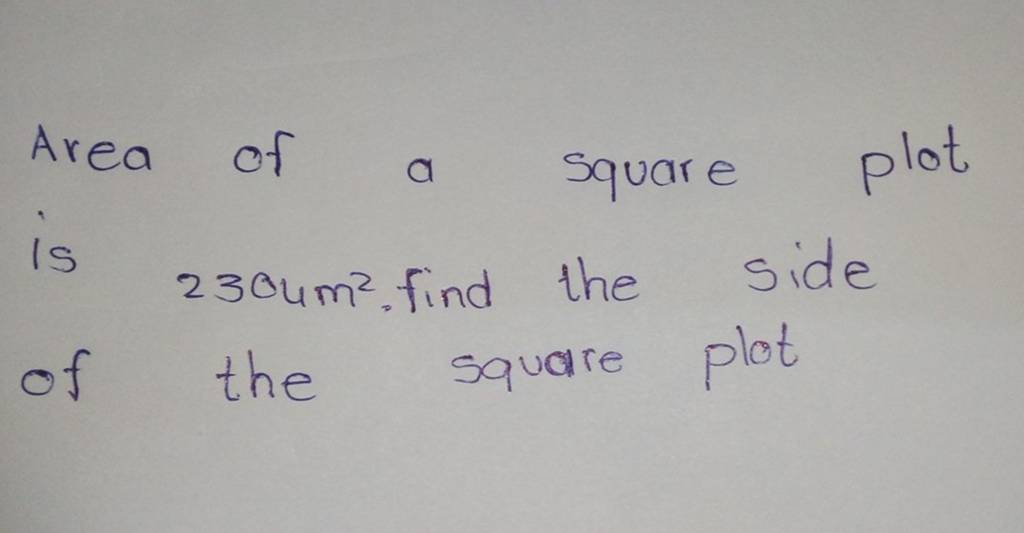 Area of a square plot
is 2304m². find the side
of the square plot